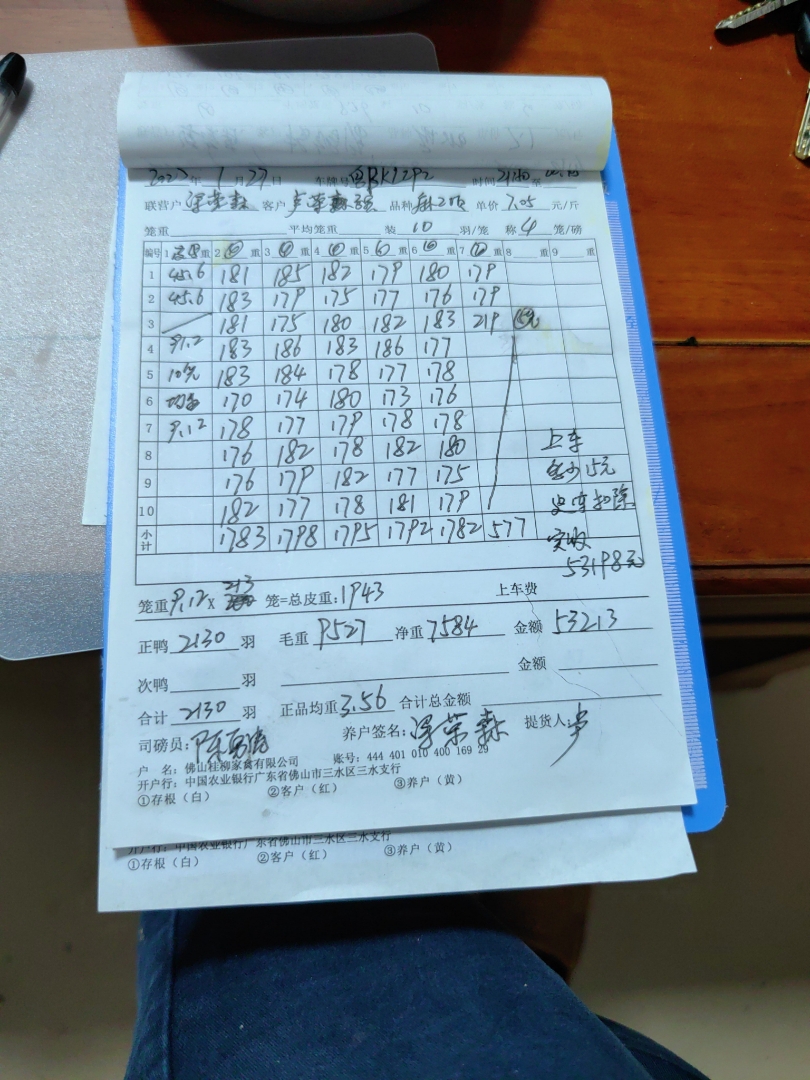 年 1 月 27 日 车牌号 时间 21:40 至
联营户 梁荣森 客户 品种 单价 7.05 元/斤
笼重 平均笼重 装 10 羽/笼 称 4 笼/磅
编号 1 重 2 ④ 重 3 ④ 重 4 ④ 重 5 ④ 重 6 ④ 重 7 重 8 重 9 重
1 45.6 181 185 182 179 180 179
2 45.6 183 179 175 177 176 179
3 181 175 180 182 183 219
4 91.2 183 186 183 186 177
5 10只 183 184 178 177 178
6 均重 170 174 180 173 176
7 9.12 178 177 179 178 178
8 176 182 178 182 180 上车
9 176 179 182 177 175 15元
10 182 177 178 181 179 扣除
小计 1783 1798 1795 1792 1782 577 实收
53198元
笼重 9.12 x 213 笼=总皮重: 1943 上车费
正鸭 2130 羽 毛重 9527 净重 7584 金额 53213
次鸭 羽 金额
合计 2130 羽 正品均重 3.56 合计总金额
司磅员: 养户签名: 梁荣森 提货人
户 名: 佛山桂柳家禽有限公司 账号: 444 401 010 400 169 29
开户行: 中国农业银行广东省佛山市三水区三水支行
①存根（白） ②客户（红） ③养户（黄）
开户行: 中国农业银行广东省佛山市三水区三水支行
①存根（白） ②客户（红） ③养户（黄）